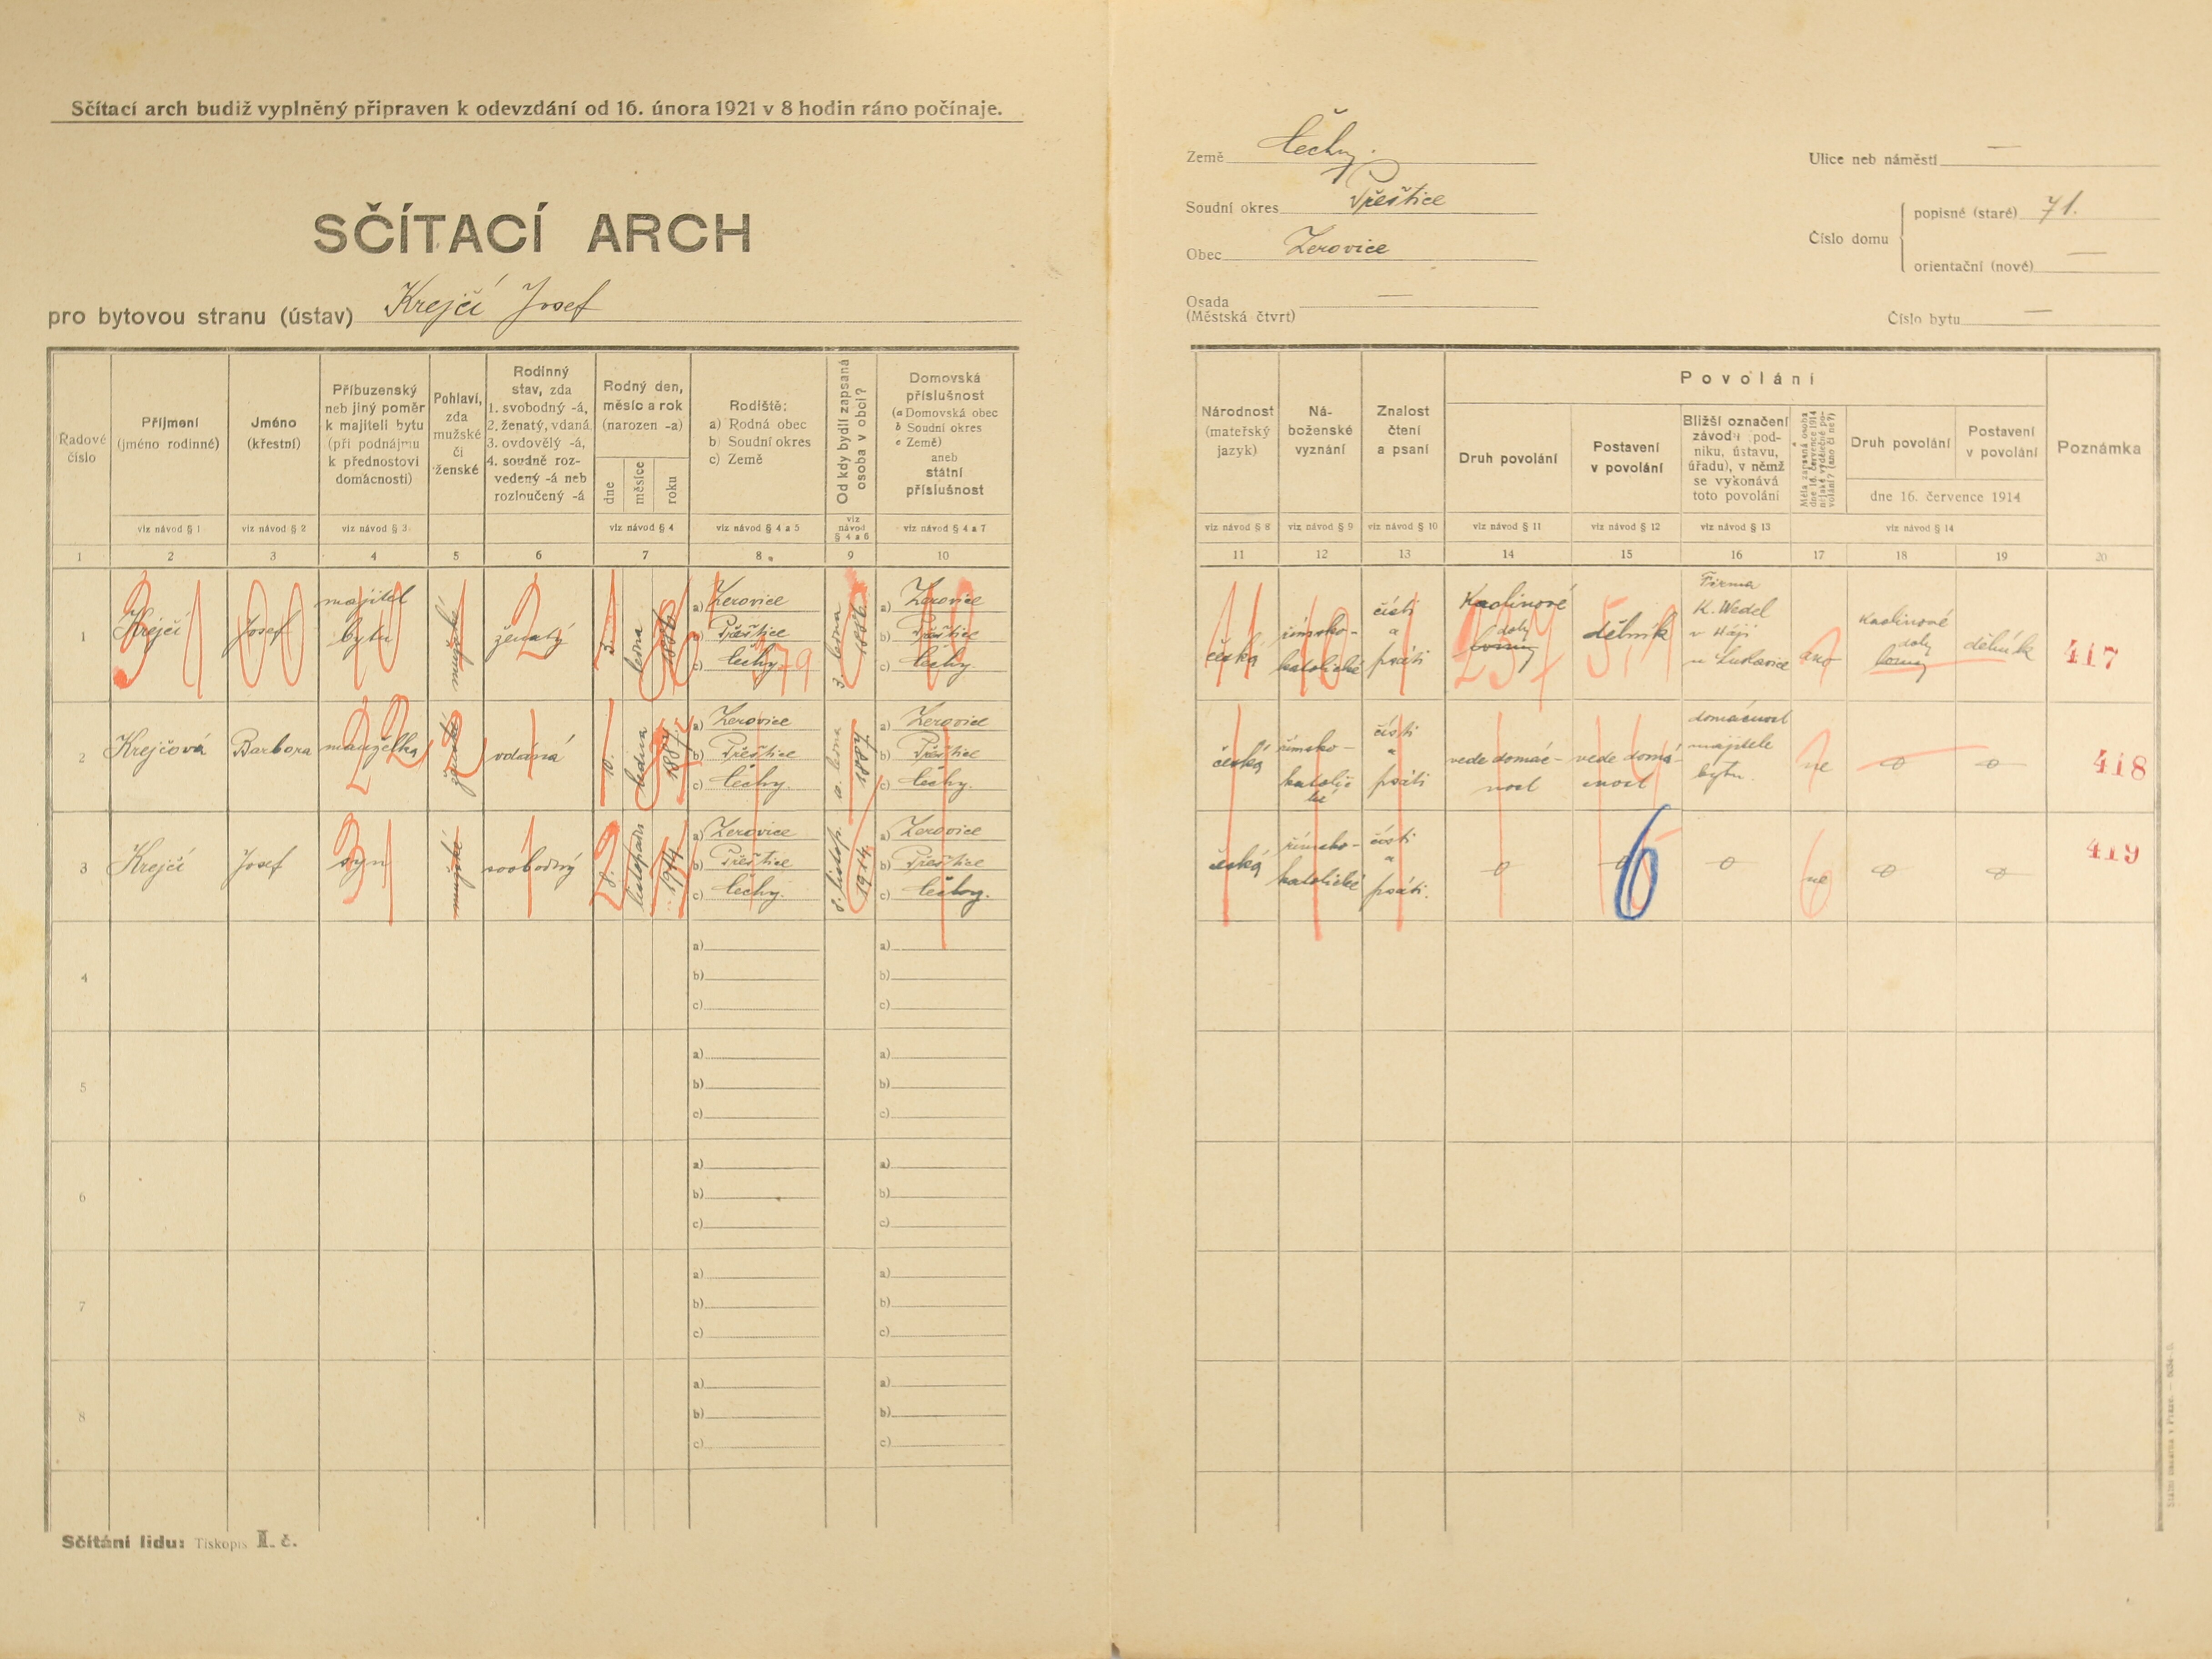 Sčítací arch budiž vyplněný připraven k odevzdání od 16. února 1921 v 8 hodin ráno počínaje.
SČÍTACÍ ARCH
pro bytovou stranu (ústav) Krejčí Josef
Země Čechy.
Soudní okres Přeštice
Obec Zerovice
Osada —
(Městská čtvrt)
Ulice neb náměstí —
Číslo domu
popisné (staré) 71.
orientační (nové) —
Číslo bytu —
Řadové číslo
Příjmení (jméno rodinné)
Jméno (křestní)
Příbuzenský neb jiný poměr k majiteli bytu (při podnájmu k přednostovi domácnosti)
Pohlaví, zda mužské či ženské
Rodinný stav, zda 1. svobodný -á, 2. ženatý, vdaná 3. ovdovělý -á, 4. soudně rozvedený -á neb rozloučený -á
Rodný den, měsíc a rok (narozen -a)
dne
měsíce
roku
Rodiště:
a) Rodná obec
b) Soudní okres
c) Země
Od kdy bydlí zapsaná osoba v obci?
Domovská příslušnost
(a Domovská obec
b Soudní okres
c Země)
aneb
státní příslušnost
Národnost (mateřský jazyk)
Náboženské vyznání
Znalost čtení a psaní
Povolání
Druh povolání
Postavení v povolání
Bližší označení závodu, podniku, ústavu, úřadu), v němž se vykonává toto povolání
Měla zapsaná osoba dne 16. července 1914 nějaké výdělečné povolání? (ano či ne?)
Druh povolání
Postavení v povolání
dne 16. července 1914
Poznámka
viz návod § 1
viz návod § 2
viz návod § 3
viz návod § 4
viz návod § 4 a 5
viz návod § 4 a 6
viz návod § 4 a 7
viz návod § 8
viz návod § 9
viz návod § 10
viz návod § 11
viz návod § 12
viz návod § 13
viz návod § 14
1 2 3 4 5 6 7 8 9 10 11 12 13 14 15 16 17 18 19 20
1 Krejčí Josef majitel bytu ženatý 3. ledna 1886
a) Zerovice
b) Přeštice
c) Čechy.
3. ledna 1886.
a) Zerovice
b) Přeštice
c) Čechy.
česká
římsko-katolické
čísti a psáti
Kaolinové doly
dělník
Firma K. Wedel v Háji u Lukavice
ano
Kaolinové doly
dělník
417
2 Krejčová Barbora manželka vdaná 10. ledna 1887.
a) Zerovice
b) Přeštice
c) Čechy.
10. ledna 1887.
a) Zerovice
b) Přeštice
c) Čechy.
česká
římsko-katolické
čísti a psáti
vede domácnost
vede domácnost
domácnost majitele bytu.
ne
418
3 Krejčí Josef syn svobodný 8. listopadu 1914
a) Zerovice
b) Přeštice
c) Čechy.
8. listop. 1914.
a) Zerovice
b) Přeštice
c) Čechy.
česká
římsko-katolické
čísti a psáti.
6
ne
419
4 a) b) c) a) b) c)
5 a) b) c) a) b) c)
6 a) b) c) a) b) c)
7 a) b) c) a) b) c)
8 a) b) c) a) b) c)
Sčítání lidu: Tiskopis I. č.